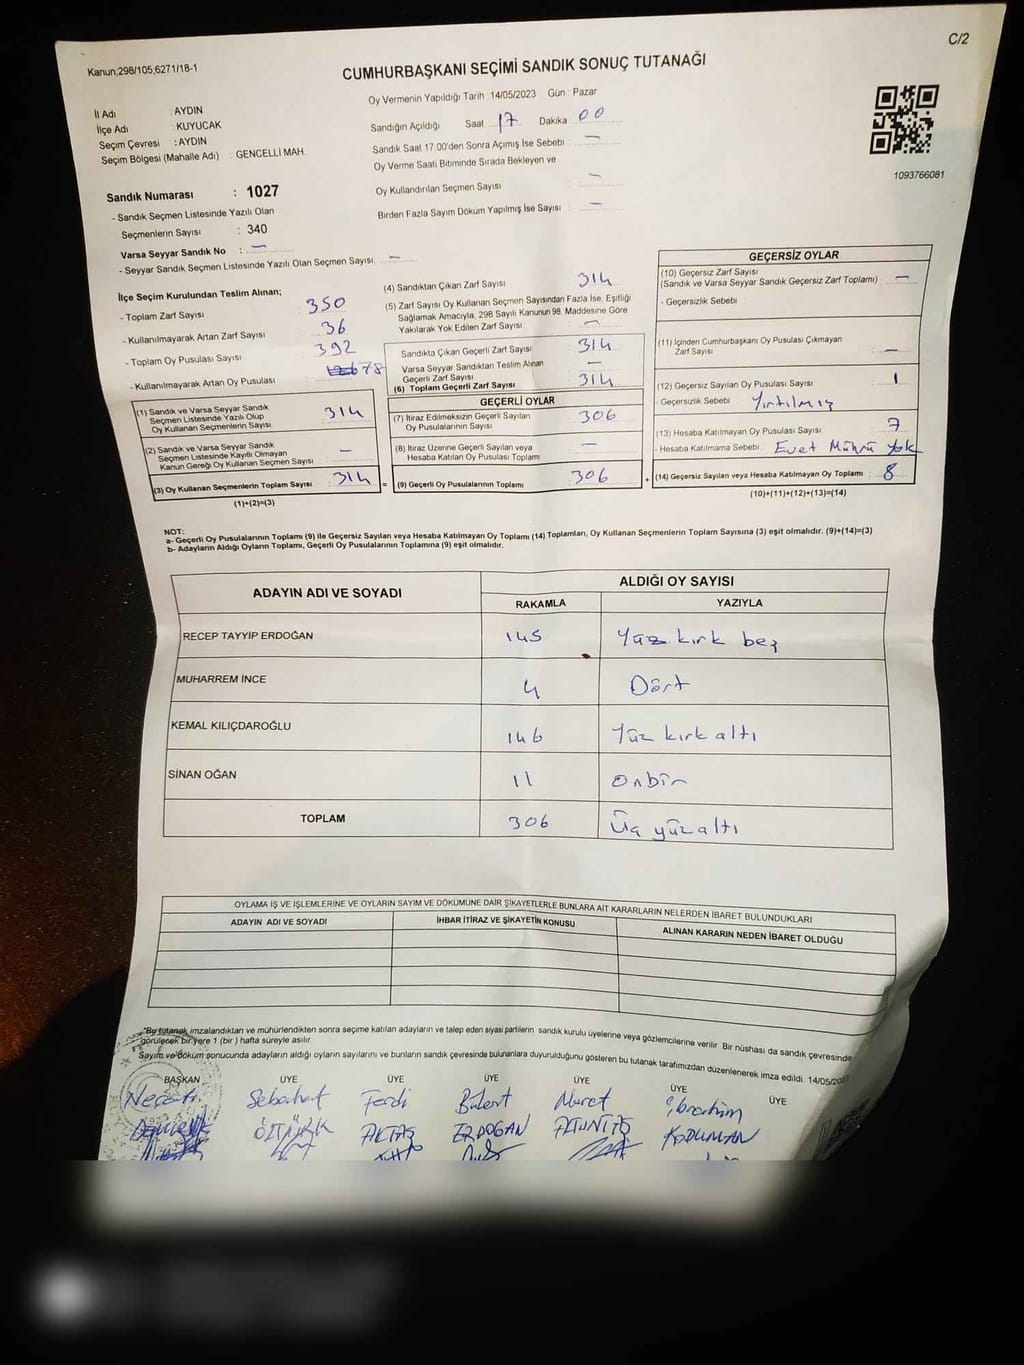 C/2
Kanun,298/105,6271/18-1
CUMHURBAŞKANI SEÇİMİ SANDIK SONUÇ TUTANAĞI
Oy Vermenin Yapıldığı Tarih : 14/05/2023 Gün : Pazar
İl Adı : AYDIN
İlçe Adı : KUYUCAK
Seçim Çevresi : AYDIN
Seçim Bölgesi (Mahalle Adı) : GENCELLİ MAH.
Sandığın Açıldığı Saat 17 Dakika : 00
Sandık Saat 17:00'den Sonra Açımış İse Sebebi : —
Oy Verme Saati Bitiminde Sırada Bekleyen ve
Oy Kullandırılan Seçmen Sayısı : —
Birden Fazla Sayım Döküm Yapılmış İse Sayısı : —
1093766081
Sandık Numarası : 1027
- Sandık Seçmen Listesinde Yazılı Olan
Seçmenlerin Sayısı : 340
Varsa Seyyar Sandık No : —
- Seyyar Sandık Seçmen Listesinde Yazılı Olan Seçmen Sayısı. : —
İlçe Seçim Kurulundan Teslim Alınan;
- Toplam Zarf Sayısı : 350
- Kullanılmayarak Artan Zarf Sayısı : 36
- Toplam Oy Pusulası Sayısı : 392
- Kullanılmayarak Artan Oy Pusulası : 78
(1) Sandık ve Varsa Seyyar Sandık
Seçmen Listesinde Yazılı Olup
Oy Kullanan Seçmenlerin Sayısı : 314
(2) Sandık ve Varsa Seyyar Sandık
Seçmen Listesinde Kayıtlı Olmayan
Kanun Gereği Oy Kullanan Seçmen Sayısı : —
(3) Oy Kullanan Seçmenlerin Toplam Sayısı : 314
(1)+(2)=(3)
(4) Sandıktan Çıkan Zarf Sayısı : 314
(5) Zarf Sayısı Oy Kullanan Seçmen Sayısından Fazla İse, Eşitliği
Sağlamak Amacıyla, 298 Sayılı Kanunun 98. Maddesine Göre
Yakılarak Yok Edilen Zarf Sayısı : —
Sandıkta Çıkan Geçerli Zarf Sayısı : 314
Varsa Seyyar Sandıktan Teslim Alınan
Geçerli Zarf Sayısı : —
(6) Toplam Geçerli Zarf Sayısı : 314
GEÇERLİ OYLAR
(7) İtiraz Edilmeksizin Geçerli Sayılan
Oy Pusulalarının Sayısı : 306
(8) İtiraz Üzerine Geçerli Sayılan veya
Hesaba Katılan Oy Pusulası Toplamı : —
= (9) Geçerli Oy Pusulalarının Toplamı : 306 +
GEÇERSİZ OYLAR
(10) Geçersiz Zarf Sayısı
(Sandık ve Varsa Seyyar Sandık Geçersiz Zarf Toplamı) : —
- Geçersizlik Sebebi :
(11) İçinden Cumhurbaşkanı Oy Pusulası Çıkmayan
Zarf Sayısı : —
(12) Geçersiz Sayılan Oy Pusulası Sayısı : 1
- Geçersizlik Sebebi : Yırtılmış
(13) Hesaba Katılmayan Oy Pusulası Sayısı : 7
- Hesaba Katılmama Sebebi : Evet Mührü Yok
(14) Geçersiz Sayılan veya Hesaba Katılmayan Oy Toplamı : 8
(10)+(11)+(12)+(13)=(14)
NOT:
a- Geçerli Oy Pusulalarının Toplamı (9) ile Geçersiz Sayılan veya Hesaba Katılmayan Oy Toplamı (14) Toplamları, Oy Kullanan Seçmenlerin Toplam Sayısına (3) eşit olmalıdır. (9)+(14)=(3)
b- Adayların Aldığı Oyların Toplamı, Geçerli Oy Pusulalarının Toplamına (9) eşit olmalıdır.
ADAYIN ADI VE SOYADI
ALDIĞI OY SAYISI
RAKAMLA YAZIYLA
RECEP TAYYİP ERDOĞAN 145 Yüz kırk beş
MUHARREM İNCE 4 Dört
KEMAL KILIÇDAROĞLU 146 Yüz kırk altı
SİNAN OĞAN 11 onbir
TOPLAM 306 Üç yüz altı
OYLAMA İŞ VE İŞLEMLERİNE VE OYLARIN SAYIM VE DÖKÜMÜNE DAİR ŞİKAYETLERLE BUNLARA AİT KARARLARIN NELERDEN İBARET BULUNDUKLARI
ADAYIN ADI VE SOYADI İHBAR İTİRAZ VE ŞİKAYETİN KONUSU ALINAN KARARIN NEDEN İBARET OLDUĞU
*Bu tutanak imzalandıktan ve mühürlendikten sonra seçime katılan adayların ve talep eden siyasi partilerin sandık kurulu üyelerine veya gözlemcilerine verilir. Bir nüshası da sandık çevresinde
görülecek bir yere 1 (bir) hafta süreyle asılır.
Sayım ve döküm sonucunda adayların aldığı oyların sayılarını ve bunların sandık çevresinde bulunanlara duyurulduğunu gösteren bu tutanak tarafımızdan düzenlenerek imza edildi. 14/05/2023
BAŞKAN ÜYE ÜYE ÜYE ÜYE ÜYE ÜYE
Sebahat Ferdi Bülent Nuret İbrahim
ÖZTÜRK AKTAŞ ERDOĞAN KADUMAN